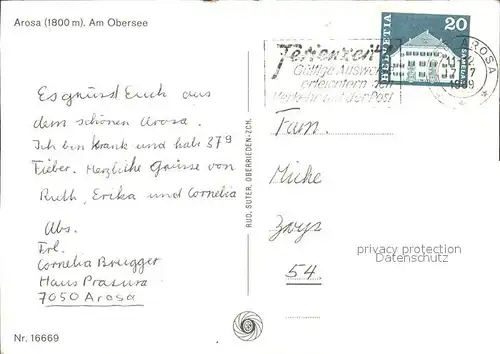 Arosa (1800 m). Am Obersee
Es grüsst Euch aus
dem schönen Arosa.
Ich bin krank und hab 37⁹
Fieber. Herzliche Grüsse von
Ruth, Erika und Cornelia
Abs.
Frl.
Cornelia Brugger
Haus Prasura
7050 Arosa
Nr. 16669
RUD. SUTER, OBERRIEDEN-ZCH.
Ferienzeit
Gültige Ausweise
erleichtern den
Verkehr mit der Post
HELVETIA
20
AROSA
1969
Fam.
Miche
54.
privacy protection
Datenschutz